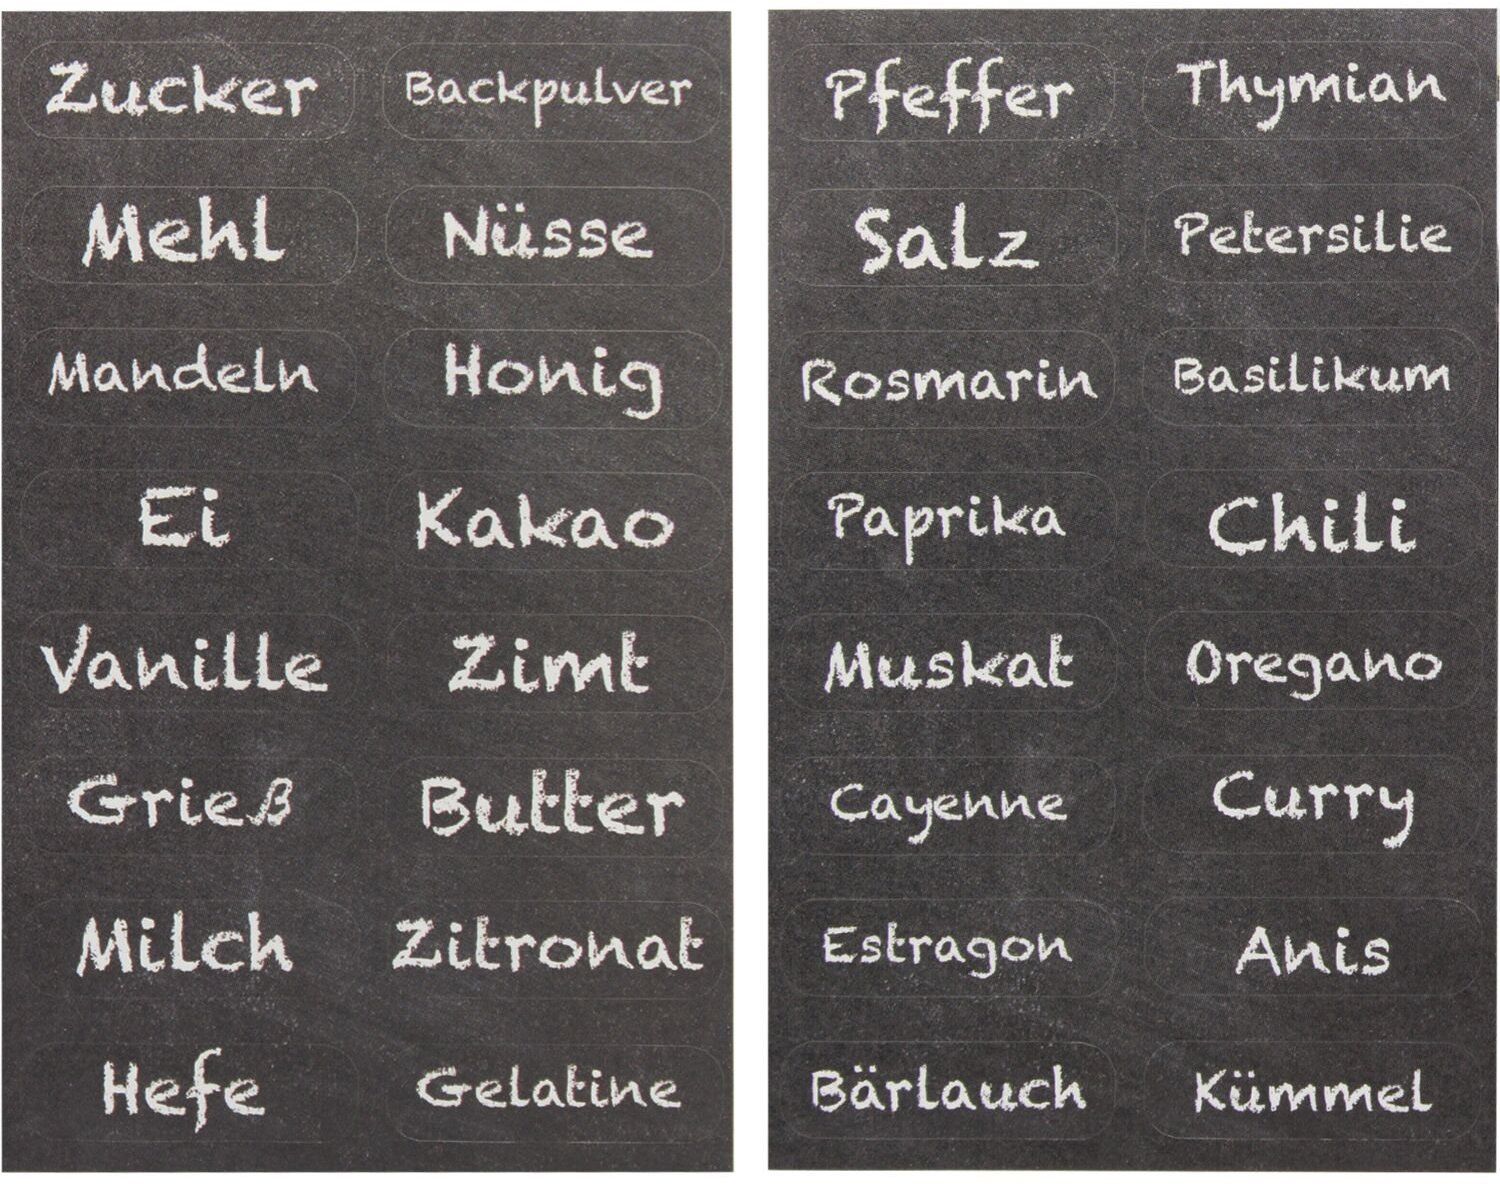 Zucker Backpulver
Mehl Nüsse
Mandeln Honig
Ei Kakao
Vanille Zimt
Grieß Butter
Milch Zitronat
Hefe Gelatine
Pfeffer Thymian
Salz Petersilie
Rosmarin Basilikum
Paprika Chili
Muskat Oregano
Cayenne Curry
Estragon Anis
Bärlauch Kümmel